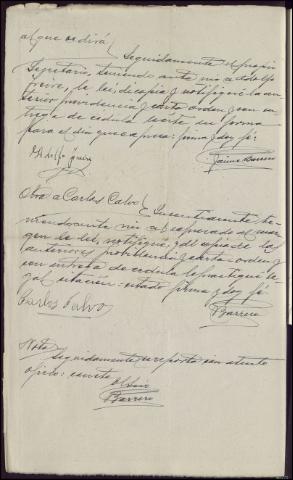 al que se dirá
Seguidamente el propio
Secretario, teniendo ante mi a Adolfo
, le leí, di copia y notifiqué la an
terior providencia y carta orden y con en
trega de cedula le cité en forma
para el dia que expresa: firma y doy fé:
Jaime Barrero
Adolfo
Otra a Carlos Calvo
Incontinente te
niendo ante mi al expresado al mar
gen le leí, notifiqué y di copia de las
anteriores providencia y carta orden y
con entrega de cedula le practiqué le
gal citacion: citado firma y doy fé
Carlos Calvo
Barrero
Nota
Seguidamente se reporta con atento
oficio: consta
Barrero